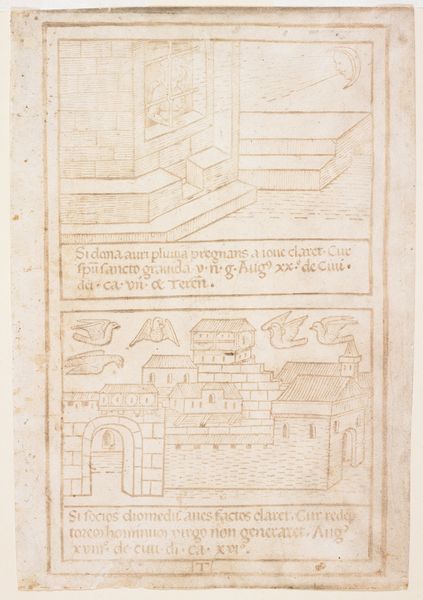 Si dona auri pluuia pregnans a ioue claret. Cur
spu sancto grauida v. n. g. Augo xx. de Ciui.
dei. ca. vii. & Teren.
Si socios diomedis aues factos claret. Cur redep
torem hominum virgo non generaret. Aug
xviii. de ciui. di. ca. xvi.
T